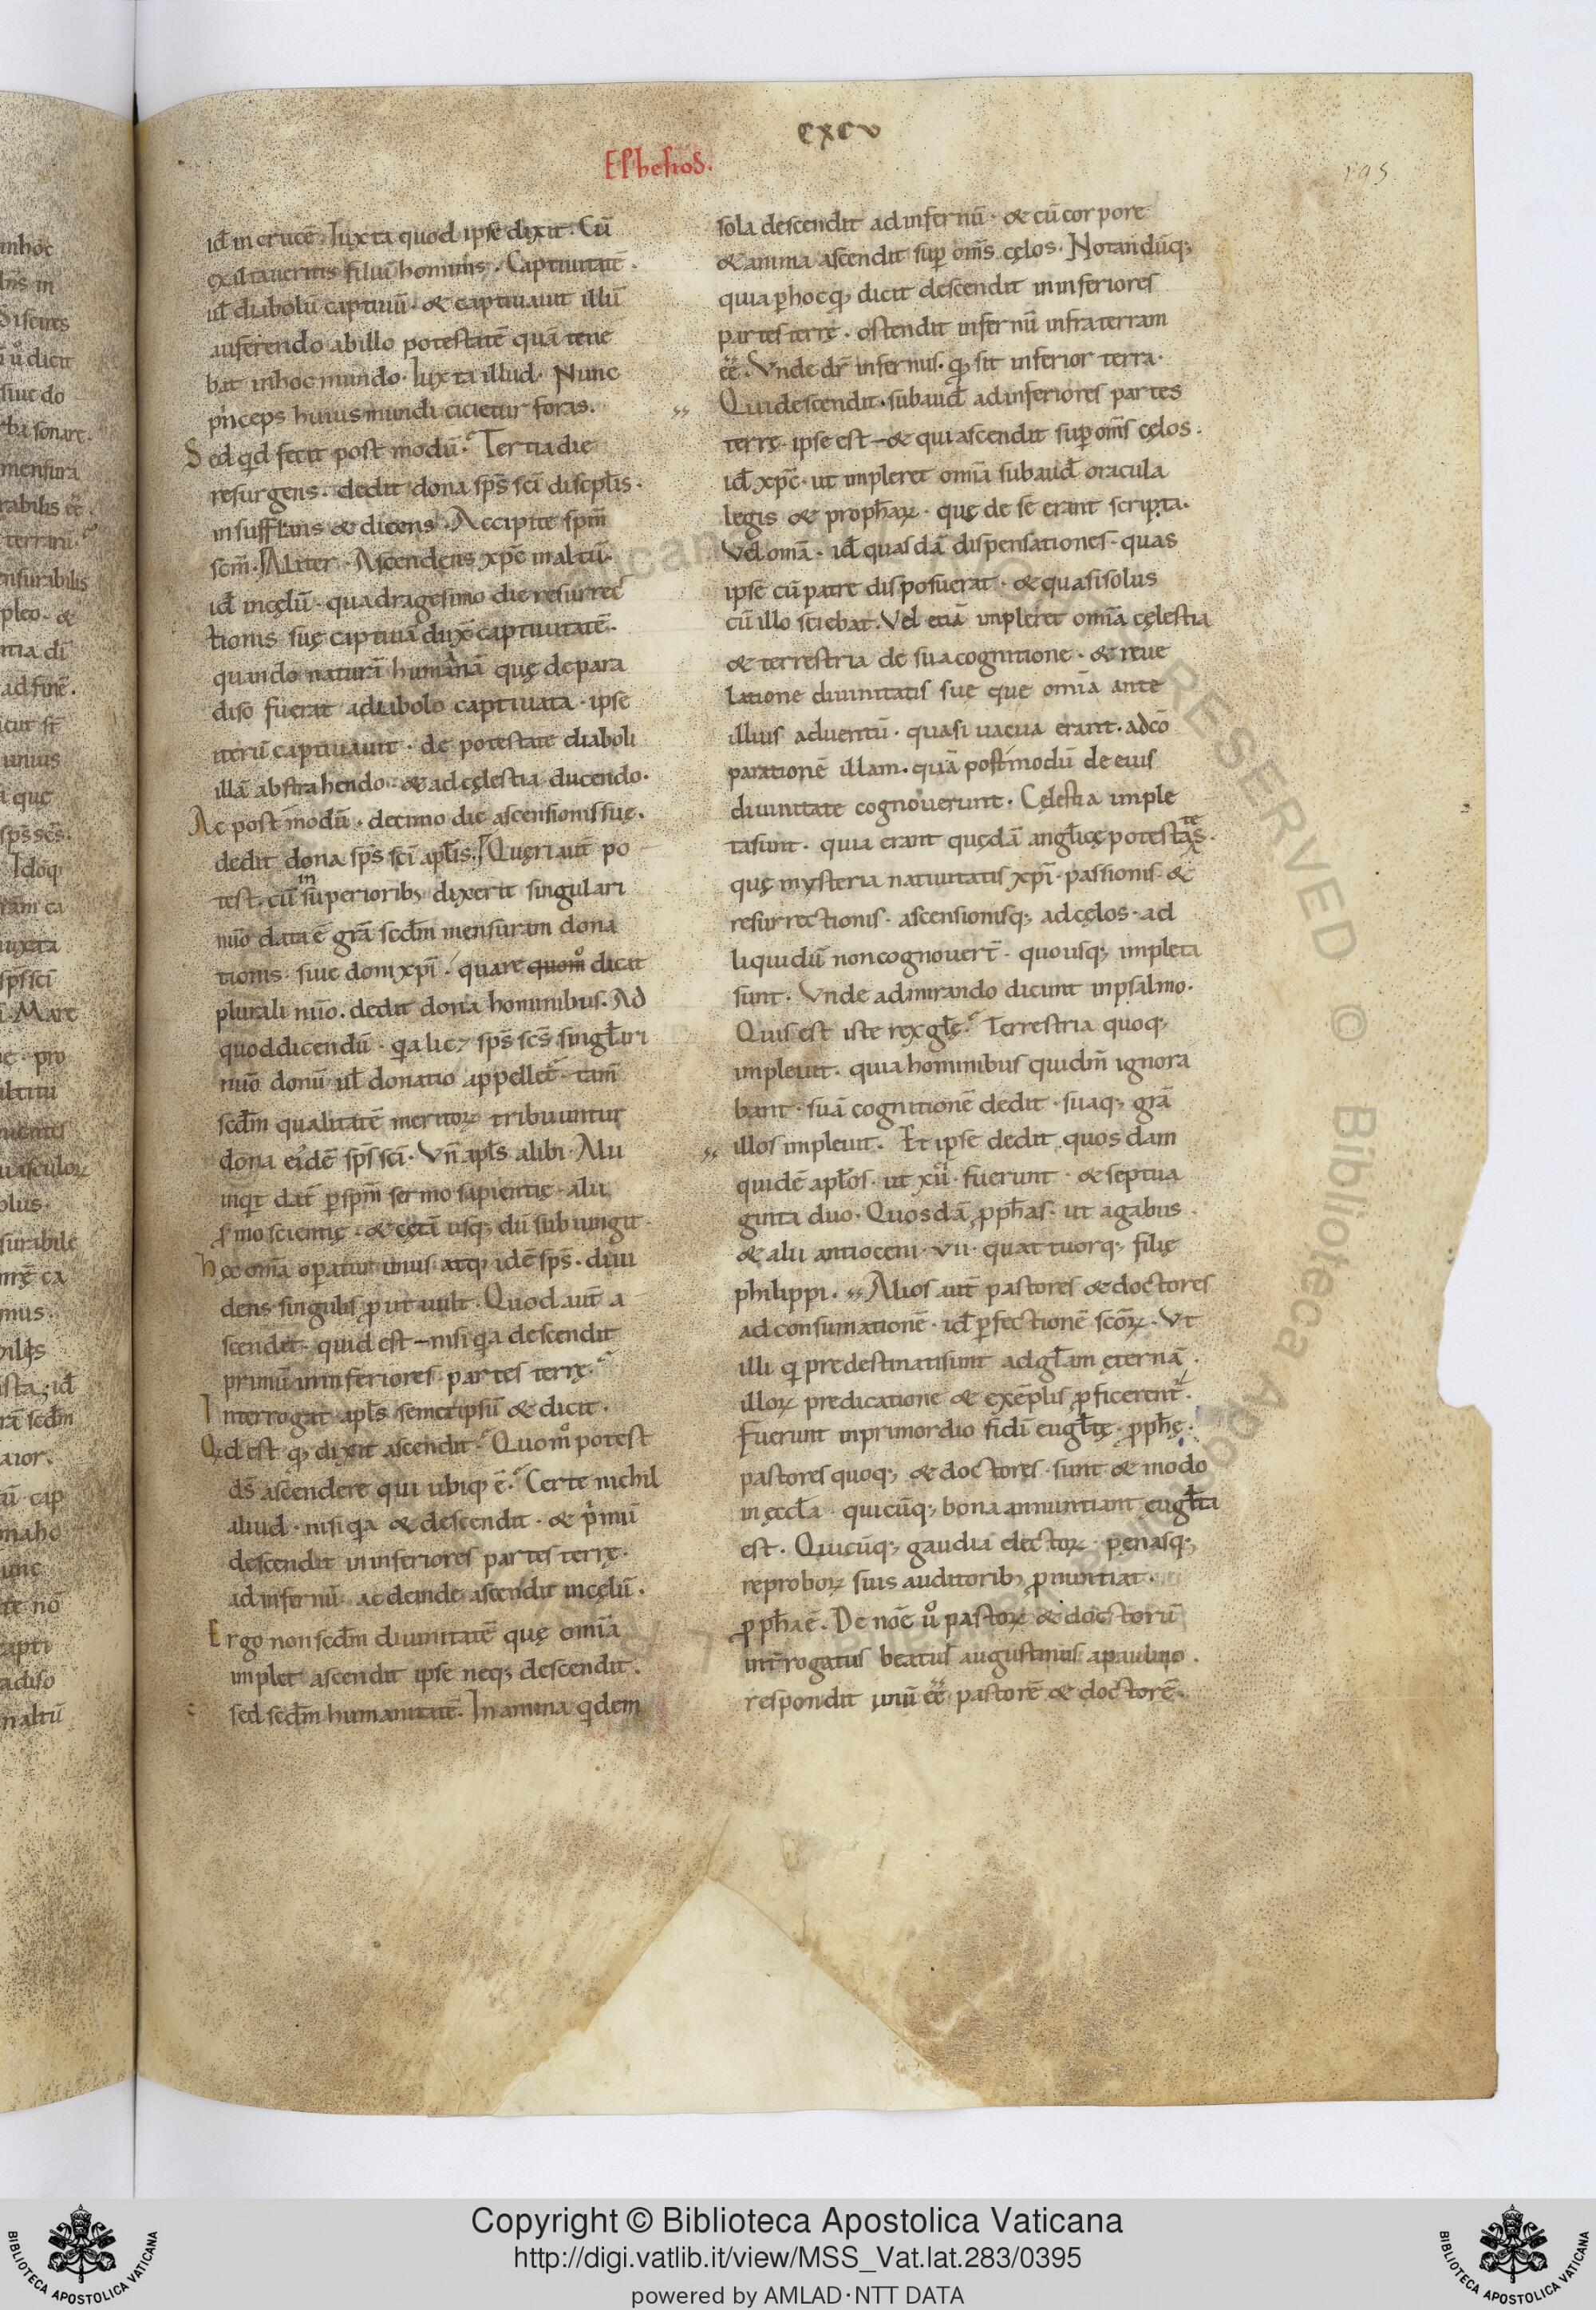 cxcv
Ephesios.
195
id̄ in crucē. Iuxta quod ipse dixit. Cū
exaltaueritis filiū hominis. Captiuitatē.
ul̄ diabolū captiuū. & captiuauit illū
auferendo ab illo potestatē quā tene
bat in hoc mundo. Iuxta illud. Nunc
p̄nceps huius mundi eicietur foras.
Sed qid fecit post modū. Tertia die
resurgens. dedit dona sp̄s sc̄i discipl̄is.
insufflans & dicens. Accipite sp̄m
sc̄m. Aliter. Ascendens xp̄c in altū.
id̄ in cęlū. quadragesimo die resurrec
tionis suę captiuā dux̄ captiuitatē.
quando naturā humanā quę de para
diso fuerat a diabolo captiuata. ipse
iterū captiuauit. de potestate diaboli
illā abstrahendo. & ad cęlestia ducendo.
Ac post modū. decimo die ascensionis suę.
dedit dona sp̄s sc̄i apl̄is. Quęri aut̄ po
test. cū in superiorib; dixerit singulari
nūo data ē grā scd̄m mensuram dona
tionis. siue doni xp̄i. quare quom̊ dicit
plurali nūo. dedit dona hominibus. Ad
quod dicendū. qa licꝫ sp̄s sc̄s singl̄ari
nūo donū ul̄ donatio appellet̄. tam̄
scd̄m qualitatē meritoꝝ tribuuntur
dona eidē sp̄s sc̄i. Vn̄ apl̄s alibi. Alii
inqit dat̄ ꝑ sp̄m sermo sapientię. alii
s̄mo scientię. & cętā usq; dū subiungit.
Hęc om̄a operatur unus atq; idē sp̄s. diui
dens singulis ꝓut uult. Quod aut̄ a
scendit. quid est nisi qa descendit
primū in inferiores partes terrę.
Interrogat apl̄s semetipsū & dicit.
Qid est qꝫ dixit ascendit. Quom̊ potest
d̄s ascendere qui ubiq; ē. Certe nichil
aliud. nisi qa & descendit. & p̄mū
descendit in inferiores partes terrę.
ad infernū. ac deinde ascendit in cęlū.
Ergo non scd̄m diuinitatē quę om̄ia
implet ascendit ipse neq; descendit.
sed scd̄m humanitatē. In anima qidem
sola descendit ad infernū. & cū corpore
& anima ascendit suꝑ om̄s cęlos. Notandūq;
quia ꝑ hoc qꝫ dicit descendit in inferiores
partes terrę. ostendit infernū infra terram
ēē. Vnde dr̄ infernus. qꝫ sit inferior terra.
Qui descendit. subaud̄ ad inferiores partes
terrę. ipse est & qui ascendit suꝑ om̄s cęlos.
id̄ xp̄c. ut impleret omā subaud̄ oracula
legis & proph̄aꝝ. quę de se erant scripta.
Vel omā. id̄ quasdā dispensationes. quas
ipse cū patre disposuerat. & quasi solus
cū illo sciebat. Vel etiā impleret omā cęlestia
& terrestria de sua cognitione. & reue
latione diuinitatis suę que omā ante
illius aduentū. quasi uacua erant. ad cō
parationē illam. quā postmodū de eius
diuinitate cognouerunt. Cęlestia imple
ta sunt. quia erant quędā angl̄icę potestates.
quę mysteria natiuitatis xp̄i. passionis &
resurrectionis. ascensionisq; ad cęlos. ad
liquidū non cognouert̄. quousq; impleta
sunt. Vnde admirando dicunt in psalmo.
Quis est iste rex gl̄ę. Terrestria quoq;
impleuit. quia hominibus quidm̄ ignora
bant. suā cognitionē dedit. suaq; grā
illos impleuit. Et ipse dedit quosdam
quidē apl̄os. ut xii. fuerunt. & septua
ginta duo. Quosdā ꝓph̄as. ut agabus.
& alii antioceni. vii. quattuorq; filię
philippi. Alios aut̄ pastores & doctores
ad consumationē. id̄ ꝑfectionē scōꝝ. Vt
illi qi predestinati sunt ad gl̄am ęternā.
illoꝝ predicatione & exēplis ꝓficerent̄.
Fuerunt in primordio fidi eugl̄tę. ꝓph̄ę.
pastores quoq; & doctores. sunt & modo
in ęccl̄a. quicūq; bona annuntiant eugl̄ta
est. Quicūq; gaudia electoꝝ. penasq;
reproboꝝ suis auditorib; ꝓnuntiat.
ꝓph̄a ē. De noē ů pastoꝝ & doctorū
int̄rogatus beatus augustinus a paulino.
respondit unū ēē pastorē & doctorē.
Copyright © Biblioteca Apostolica Vaticana
http://digi.vatlib.it/view/MSS_Vat.lat.283/0395
powered by AMLAD·NTT DATA